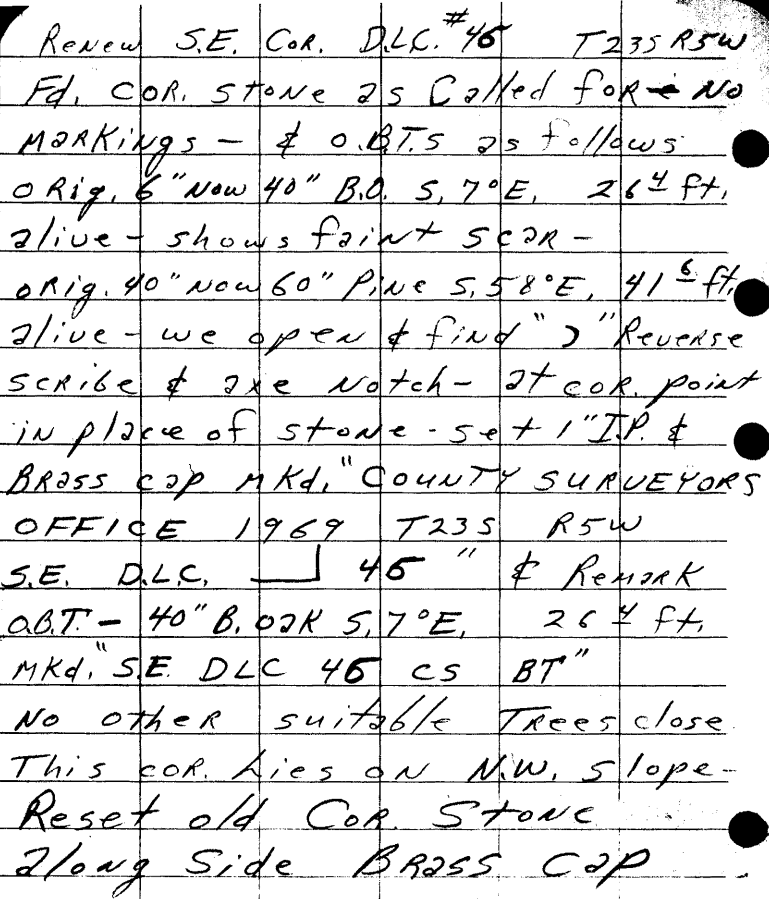 Renew S.E. Cor. D.L.C. #46 T23S R5W
Fd. COR. stone as Called for - No
markings - & O.B.T.s as follows
ORig. 6" Now 40" B.O. S. 7°E. 26⁴ ft.
alive - shows faint scar -
orig. 40" Now 60" Pine S. 58°E. 41⁶ ft.
alive - we open & find " ) " Reverse
scribe & axe Notch - at cor. point
in place of stone - set 1" I.P. &
Brass cap mkd. "COUNTY SURVEYORS
OFFICE 1969 T23S R5W
S.E. D.L.C. 46 " & Remark
O.B.T. - 40" B. oak S. 7°E. 26⁴ ft.
Mkd. "S.E. DLC 46 CS BT"
No other suitable Trees close
This cor. Lies on N.W. slope -
Reset old Cor. Stone
along Side Brass Cap